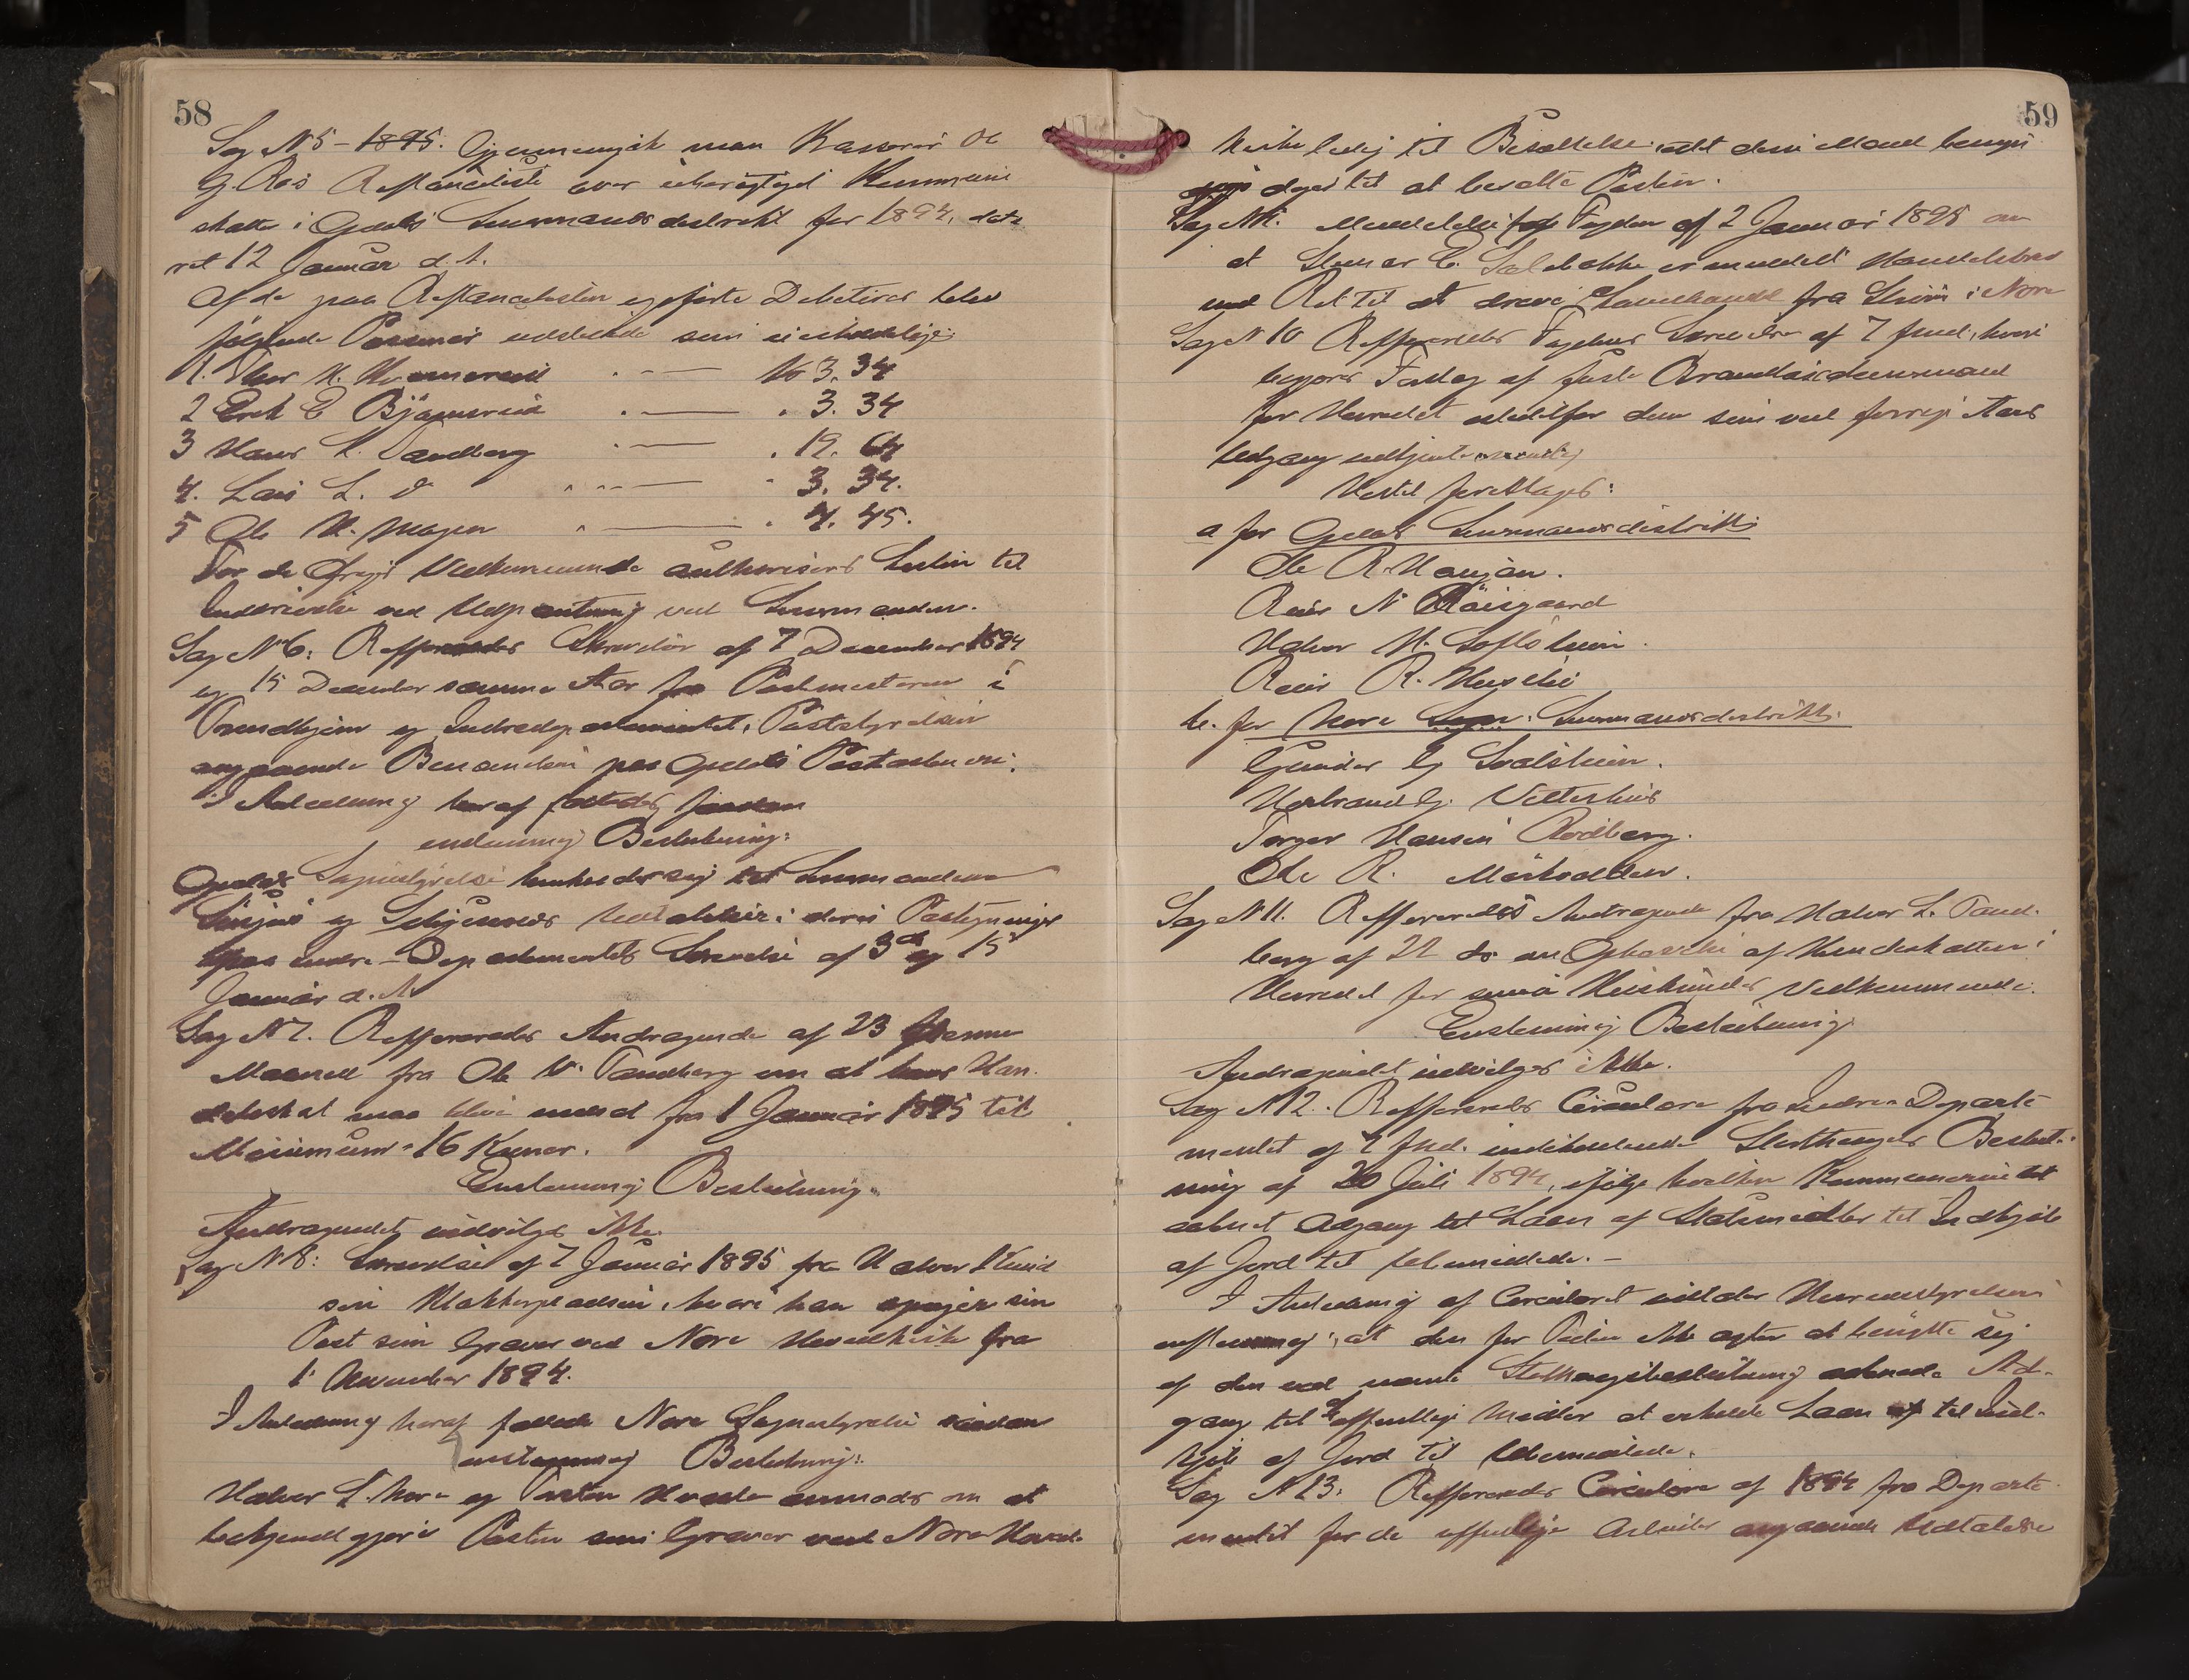 58
Sag N 5 - 1895. Gjennemgik man Kasserer Ole
G. Ros Restanceliste over Kommune
skatten i Opdals Lensmandsdistrikt for 1894, date
ret 12 Januar d. A.
Af de paa Restancelisten opførte Debitorer blev
følgende Personer udslettede som uerholdelige:
1. Thor H. Kr 3.34
2 Erik E . 3.34
3 Hans L. Tandberg . 19. 64
4. Lars L. do 3. 34.
5 Ole H. Mogen . 4. 45.
For de øvrige Vedkommende authoriseres Listen til
Inddrivelse ved Udpantning ved Lensmanden.
Sag N 6: Refereredes Skrivelse af 7 December 1894
og 15 December samme Aar fra Postmesteren i
Trondhjem og Indredepartementet, Poststyrelsen
angaaende paa Opdals Postaabneri.
I Anledning heraf fattedes saadan
enstemmig Beslutning:
Opdals Sognestyrelse henholder sig til Lensmændene
og Udtalelser i deres Paategninger
paa Indre-Departementets Skrivelse af 3die og 15
Januar d. A.
Sag N 7. Refereredes Andragende af 23 denne
Maaned fra Ole W. Tandberg om at hans Han-
delsskat maa blive nedsat fra 1 Januar 1895 til
Minimum - 16 Kroner.
Enstemmig Beslutning:
Andragendet indvilges ikke.
Sag N 8: Skrivelse af 7 Januar 1895 fra Halvor Knud
sen Klokkerpladsen, hvori han opsiger sin
Post som Graver ved Nore Hovedkirke fra
1 November 1894.
I Anledning heraf fattede Nore Sognestyrelse saadan
enstemmig Beslutning:
Halvor L. Nore og Torsten anmodes om at
bekjendtgjøre Posten som Graver ved Nore Hoved-
59
kirke ledig til Besættelse, idet disse Mænd bemyn
diges til at besætte Posten.
Sag N 9. Meddelelse fra Fogden af 2 Januar 1895 om
at Steinar E. er meddelt Handelsbrev
med Ret til at drive Landhandel fra i Nore
Sag N 10 Refereredes Fogdens Skrivelse af 7 ds, hvori
begjæres Forslag af faste Brandtaxationsmænd
for Herredet istedetfor dem som ved forrige Aars
Udgang udtjente
Hertil foreslaaes:
a for Opdals Lensmandsdistrikt:
Ole R. Haugan.
Reier N
Halvor H.
Reier R.
b. for Nore Sogns Lensmandsdistrikt:
Gunder G
Herbrand G.
Torger Hansen Rødberg.
Ole R.
Sag N 11. Refereredes Andragende fra Halvor L. Tand-
berg af 22 ds om Ophævelse af Hundeskatten i
Herredet for smaa Vedkommende.
Enstemmig Beslutning:
Andragendet indvilges ikke.
Sag N 12. Refereredes Circulære fra Indre-Departe-
mentet af indeholdende Storthingets Beslut-
ning af 20 Juli 1894, ifølge hvilken Kommunerne
aabnet Adgang til Laan af Statsmidler til Indkjøb
af Jord til Ubemidlede. –
I Anledning af Circulæret udtaler Herredsstyrelsen
enstemmig, at den for Tiden ikke agter at benytte sig
af den ved nævnte Storthingsbeslutning aabnede Ad-
gang til af offentlige Midler at erholde Laan til Ind-
kjøb af Jord til Ubemidlede.
Sag N 13. Refereredes Circulære af 1894 fra Departe-
mentet for de offentlige Arbeider angaaende Udtalelse